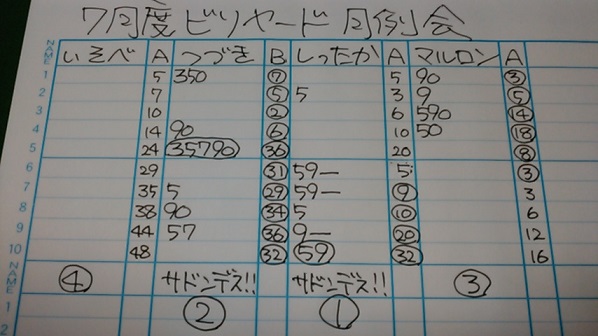 7月度ビリヤード月例会
NAME いそべ A つづき B しったか A マルロン A
1 5 350 ⑦ 5 90 ③
2 7 ⑤ 5 3 9 ⑤
3 10 ② 6 590 ⑭
4 14 90 ⑥ 10 50 ⑱
5 24 35790 ㊱ 20 ⑧
6 29 ㉛ 59ー 5 ③
7 35 5 ㉙ 59ー ⑨ 3
8 38 90 ㉞ 5 ⑩ 6
9 44 57 ㊱ 9ー ⑳ 12
10 48 ㉜ 59 ㉜ 16
NAME ④ サドンデス!! サドンデス!! ③
1 ② ①
2